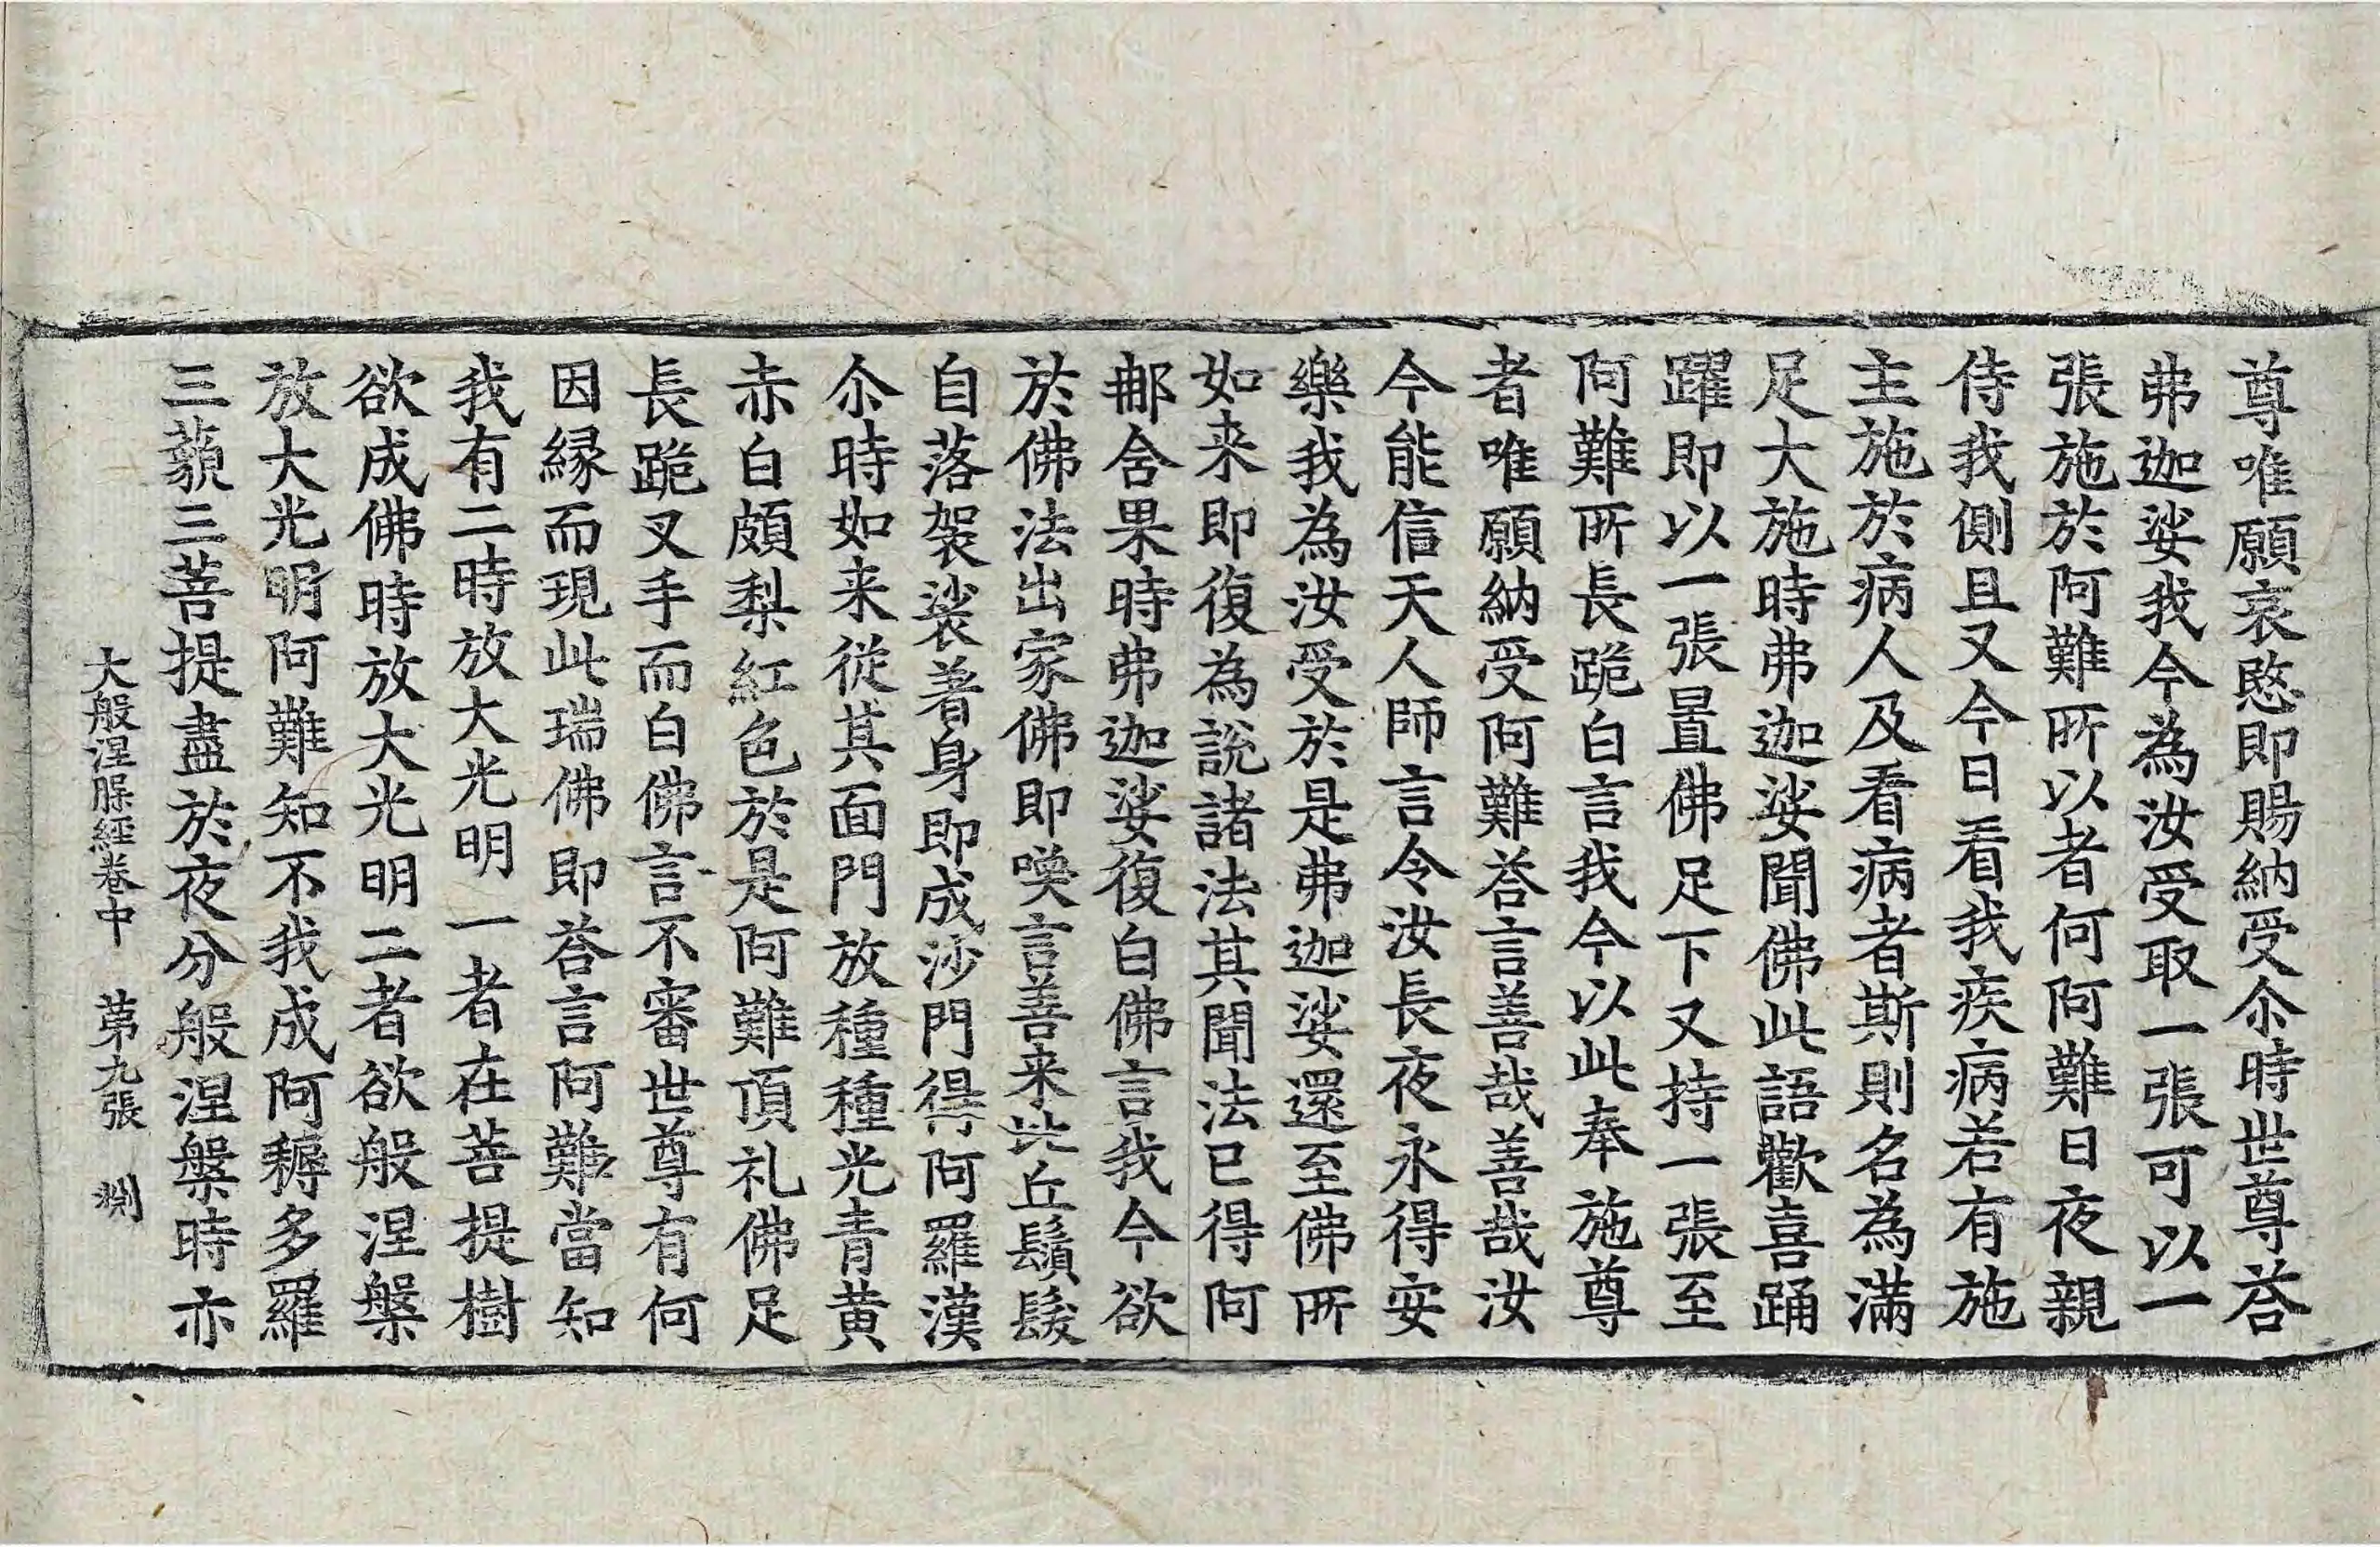 尊唯願哀愍即賜納受尒時世尊荅
弗迦娑我今為汝受取一張可以一
張施於阿難所以者何阿難日夜親
侍我側且又今日看我疾病若有施
主施於病人及看病者斯則名為滿
足大施時弗迦娑聞佛此語歡喜踊
躍即以一張置佛足下又持一張至
阿難所長跪白言我今以此奉施尊
者唯願納受阿難荅言善哉善哉汝
今能信天人師言令汝長夜永得安
樂我為汝受於是弗迦娑還至佛所
如来即復為說諸法其聞法已得阿
那舍果時弗迦娑復白佛言我今欲
於佛法出家佛即喚言善来比丘鬚髮
自落袈裟着身即成沙門得阿羅漢
尒時如来從其面門放種種光青黄
赤白頗梨紅色於是阿難頂礼佛足
長跪叉手而白佛言不審世尊有何
因縁而現此瑞佛即荅言阿難當知
我有二時放大光明一者在菩提樹
欲成佛時放大光明二者欲般涅槃
放大光明阿難知不我成阿耨多羅
三藐三菩提盡於夜分般涅槃時亦
大般涅槃經卷中 苐九張 渕